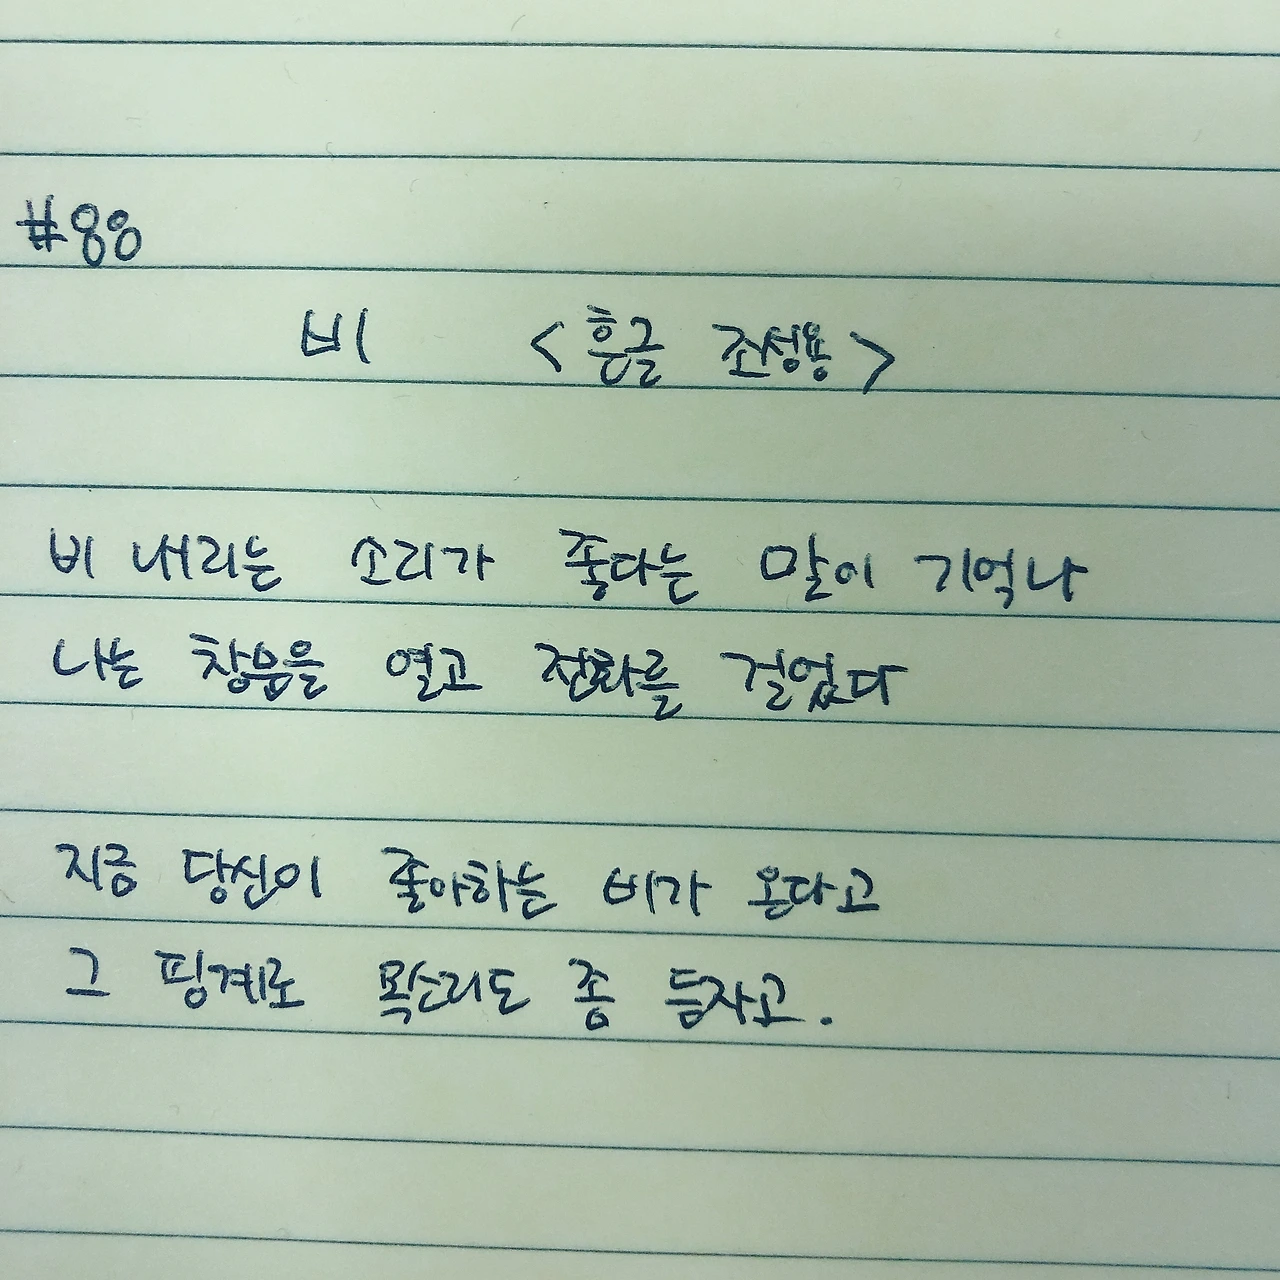 #88
비 <흔글 조성용>
비 내리는 소리가 좋다는 말이 기억나
나는 창문을 열고 전화를 걸었다
지금 당신이 좋아하는 비가 온다고
그 핑계로 목소리도 좀 듣자고.